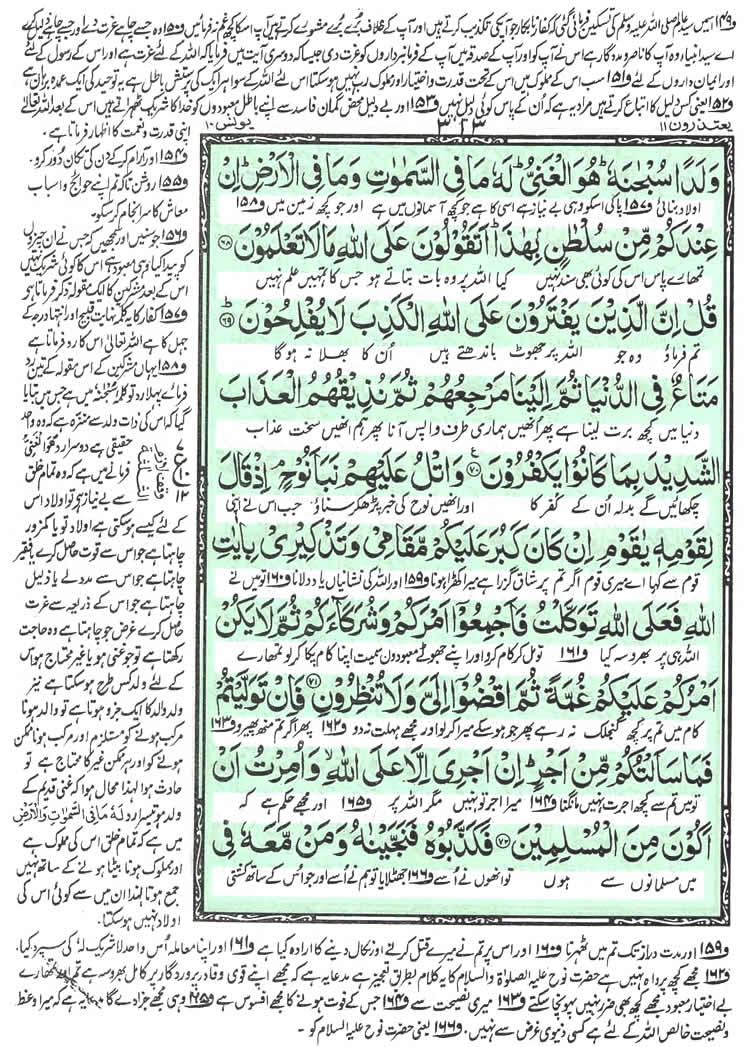 و۱۴۹ اسمیں سید عالم صلی اللہ علیہ وسلم کی تسکین فرمائی گئی کہ کفار نابکار جو آپکی تکذیب کرتے ہیں اور آپ کے خلاف بُرے بُرے مشورے کرتے ہیں آپ اسکا کچھ غم نہ فرمائیں و۱۵۰ وہ جسے چاہے عزت دے اور جسے چاہے ذلیل کرے
اے سید انبیا وہ آپ کا ناصر و مددگار ہے اس نے آپ کو اور آپ کے صدقہ میں آپ کے فرمانبرداروں کو عزت دی جیسا کہ دوسری آیت میں فرمایا کہ اللہ کے لئے عزت ہے اور اس کے رسول کے لئے
اور ایمان داروں کے لئے و۱۵۱ سب اس کے مملوک ہیں اس کے تحت قدرت و اختیار اور مملوک رب نہیں ہو سکتا اس لئے اللہ کے سوا ہر ایک کی پرستش باطل ہے یہ توحید کی ایک عمدہ برہان ہے
و۱۵۲ یعنی کس دلیل کا اتباع کرتے ہیں مراد یہ ہے کہ اُن کے پاس کوئی دلیل نہیں و۱۵۳ اور بے دلیل محض گمان فاسد سے اپنے باطل معبودوں کو خدا کا شریک ٹھہراتے ہیں اس کے بعد اللہ تعالیٰ
یعتذرون ۱۱
۳۱۳
یونس ۱۰
اپنی قدرت و نعمت کا اظہار فرماتا ہے۔
و۱۵۴ اور آرام کر کے دن کی تکان دُور کرو۔
و۱۵۵ روشن تاکہ تم اپنے حوائج و اسباب
معاش کا سرانجام کر سکو۔
و۱۵۶ جو سنیں اور سمجھیں کہ جس نے ان چیزوں
کو پیدا کیا وہی معبود ہے اس کا کوئی شریک نہیں
اس کے بعد مشرکین کا ایک مقولہ ذکر فرماتا ہے
و۱۵۷ کفار کا یہ کلمہ نہایت قبیح اور انتہا درجہ کے
جہل کا ہے اللہ تعالیٰ اس کا رد فرماتا ہے
و۱۵۸ یہاں مشرکین کے اس مقولہ کے تین رد
فرمائے پہلا رد تو کلمہ سُبْحٰنَہٗ میں ہے جس میں بتایا
گیا کہ اس کی ذات ولد سے منزہ ہے کہ وہ واحد
حقیقی ہے دوسرا رد ھُوَ الْغَنِیُّ
فرمانے میں ہے کہ وہ تمام خلق
سے بے نیاز ہے تو اولاد اس
کے لئے کیسے ہو سکتی ہے اولاد تو یا کمزور
چاہتا ہے جو اس سے قوت حاصل کرے یا فقیر
چاہتا ہے جو اس سے مدد لے یا ذلیل
چاہتا ہے جو اس کے ذریعہ سے عزت
حاصل کرے غرض جو چاہتا ہے وہ حاجت
رکھتا ہے تو جو غنی ہو یا غیر محتاج ہو اس
کے لئے ولد کس طرح ہو سکتا ہے نیز
ولد والد کا ایک جزو ہوتا ہے تو والد ہونا
مرکب ہونے کو مستلزم اور مرکب ہونا ممکن
ہونے کو اور ہر ممکن غیر کا محتاج ہے تو
حادث ہوا لہذا محال ہوا کہ غنی قدیم کے
ولد ہو تیسرا رد لَہٗ مَا فِی السَّمٰوٰتِ وَالْاَرْضِ
میں ہے کہ تمام خلق اس کی مملوک ہے
اور مملوک ہونا بیٹا ہونے کے ساتھ نہیں
جمع ہوتا لہذا ان میں سے کوئی اس کی
اولاد نہیں ہو سکتا۔
وَلَدًا سُبْحٰنَهٗ ؕ هُوَ الْغَنِیُّ ؕ لَهٗ مَا فِی السَّمٰوٰتِ وَمَا فِی الْاَرْضِ ؕ اِنْ
اولاد بنائی و۱۵۷ پاکی اسکو وہی بے نیاز ہے اسی کا ہے جو کچھ آسمانوں میں ہے اور جو کچھ زمین میں و۱۵۸
عِنْدَكُمْ مِّنْ سُلْطٰنٍۭ بِهٰذَا ؕ اَتَقُوْلُوْنَ عَلَی اللّٰهِ مَا لَا تَعْلَمُوْنَ ﴿۶۸﴾
تمہارے پاس اس کی کوئی بھی سند نہیں کیا اللہ پر وہ بات بتاتے ہو جس کا تمہیں علم نہیں
قُلْ اِنَّ الَّذِیْنَ یَفْتَرُوْنَ عَلَی اللّٰهِ الْكَذِبَ لَا یُفْلِحُوْنَ ﴿۶۹﴾ؕ
تم فرماؤ وہ جو اللہ پر جھوٹ باندھتے ہیں اُن کا بھلا نہ ہوگا
مَتَاعٌ فِی الدُّنْیَا ثُمَّ اِلَیْنَا مَرْجِعُهُمْ ثُمَّ نُذِیْقُهُمُ الْعَذَابَ
دنیا میں کچھ برت لینا ہے پھر اُنھیں ہماری طرف واپس آنا پھر ہم اُنھیں سخت عذاب
الشَّدِیْدَ بِمَا كَانُوْا یَكْفُرُوْنَ ﴿۷۰﴾ وَاتْلُ عَلَیْهِمْ نَبَاَ نُوْحٍ ۘ اِذْ قَالَ
چکھائیں گے بدلہ اُن کے کفر کا اور انھیں نوح کی خبر پڑھ کر سناؤ جب اس نے اپنی
لِقَوْمِهٖ یٰقَوْمِ اِنْ كَانَ كَبُرَ عَلَیْكُمْ مَّقَامِیْ وَتَذْكِیْرِیْ بِاٰیٰتِ
قوم سے کہا اے میری قوم اگر تم پر شاق گزرا ہے میرا کھڑا ہونا و۱۵۹ اور اللہ کی نشانیاں یاد دلانا و۱۶۰ تو میں نے
اللّٰهِ فَعَلَی اللّٰهِ تَوَكَّلْتُ فَاَجْمِعُوْۤا اَمْرَكُمْ وَشُرَكَآءَكُمْ ثُمَّ لَا یَكُنْ
اللہ ہی پر بھروسہ کیا و۱۶۱ تو مل کر کام کرو اور اپنے جھوٹے معبودوں سمیت اپنا کام پکا کر لو تمھارے
اَمْرُكُمْ عَلَیْكُمْ غُمَّةً ثُمَّ اقْضُوْۤا اِلَیَّ وَلَا تُنْظِرُوْنِ ﴿۷۱﴾ فَاِنْ تَوَلَّیْتُمْ
کام میں تم پر کچھ گنجلک نہ رہے پھر جو ہو سکے میرا کر لو اور مجھے مہلت نہ دو و۱۶۲ پھر اگر تم منھ پھیرو و۱۶۳
فَمَا سَاَلْتُكُمْ مِّنْ اَجْرٍ ؕ اِنْ اَجْرِیَ اِلَّا عَلَی اللّٰهِ ۙ وَاُمِرْتُ اَنْ
تو میں تم سے کچھ اجرت نہیں مانگتا و۱۶۴ میرا اجر تو نہیں مگر اللہ پر و۱۶۵ اور مجھے حکم ہے کہ
اَكُوْنَ مِنَ الْمُسْلِمِیْنَ ﴿۷۲﴾ فَكَذَّبُوْهُ فَنَجَّیْنٰهُ وَمَنْ مَّعَهٗ فِی
میں مسلمانوں سے ہوں تو انھوں نے اُسے و۱۶۶ جھٹلایا تو ہم نے اُسے اور جو اُس کے ساتھ کشتی
و۱۵۹ اور مدت دراز تک تم میں ٹھہرنا و۱۶۰ اور اس پر تم نے میرے قتل کرنے اور نکال دینے کا ارادہ کیا ہے و۱۶۱ اور اپنا معاملہ اُس واحد لاشریک لہٗ کی سپرد کیا۔
و۱۶۲ مجھے کچھ پرواہ نہیں ہے حضرت نوح علیہ الصلوٰۃ والسلام کا یہ کلام بطریق تعجیز ہے مدعا یہ ہے کہ مجھے اپنے قوی و قادر پروردگار پر کامل بھروسہ ہے تم اور تمھارے
بے اختیار معبود مجھے کچھ بھی ضرر نہیں پہونچا سکتے و۱۶۳ میری نصیحت سے و۱۶۴ جس کے فوت ہونے کا مجھے افسوس ہے و۱۶۵ وہی مجھے جزا دے گا مدعا یہ ہے کہ میرا وعظ
و نصیحت خالص اللہ کے لئے ہے کسی دنیوی غرض سے نہیں۔ و۱۶۶ یعنی حضرت نوح علیہ السلام کو۔